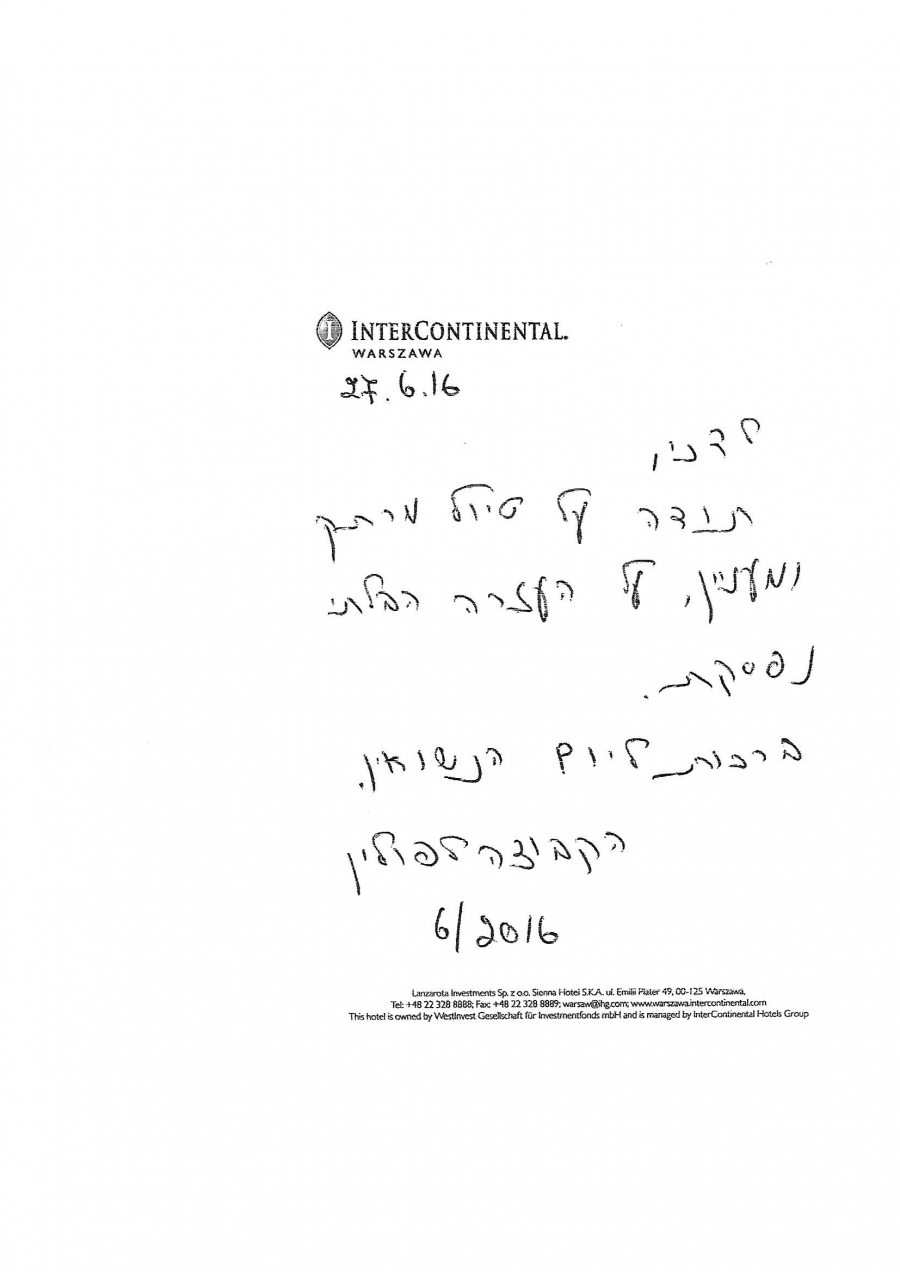 INTERCONTINENTAL.
WARSZAWA
27.6.16
לדני,
תודה על טיול מרתק
ומעניין, על העזרה הבלתי
נפסקת.
ברכות ליום הנשואין.
הקבוצה לפולין
6/2016
Lanzarota Investments Sp. z o.o. Sienna Hotel S.K.A. ul. Emilii Plater 49, 00-125 Warszawa,
Tel: +48 22 328 8888; Fax: +48 22 328 8889; warsaw@ihg.com; www.warszawa.intercontinental.com
This hotel is owned by WestInvest Gesellschaft für Investmentfonds mbH and is managed by InterContinental Hotels Group